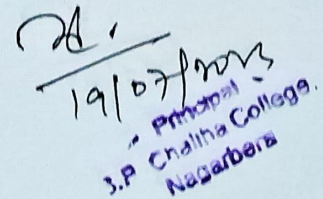 19/07/2023
Principal
S.P Chaliha College.
Nagarbera